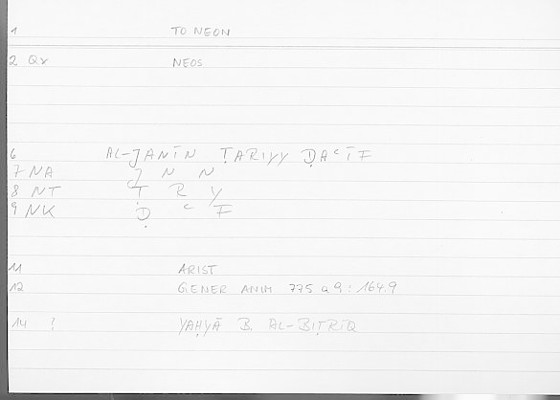 1 TO NEON
2 Qv NEOS
6 AL-JANĪN ṬARIYY ḌAʿĪF
7 NA J N N
8 NT Ṭ R Y
9 NK Ḍ ʿ F
11 ARIST
12 GENER ANIM 775 a 9 : 164.9
14 ? YAḤYĀ B. AL-BIṬRĪQ